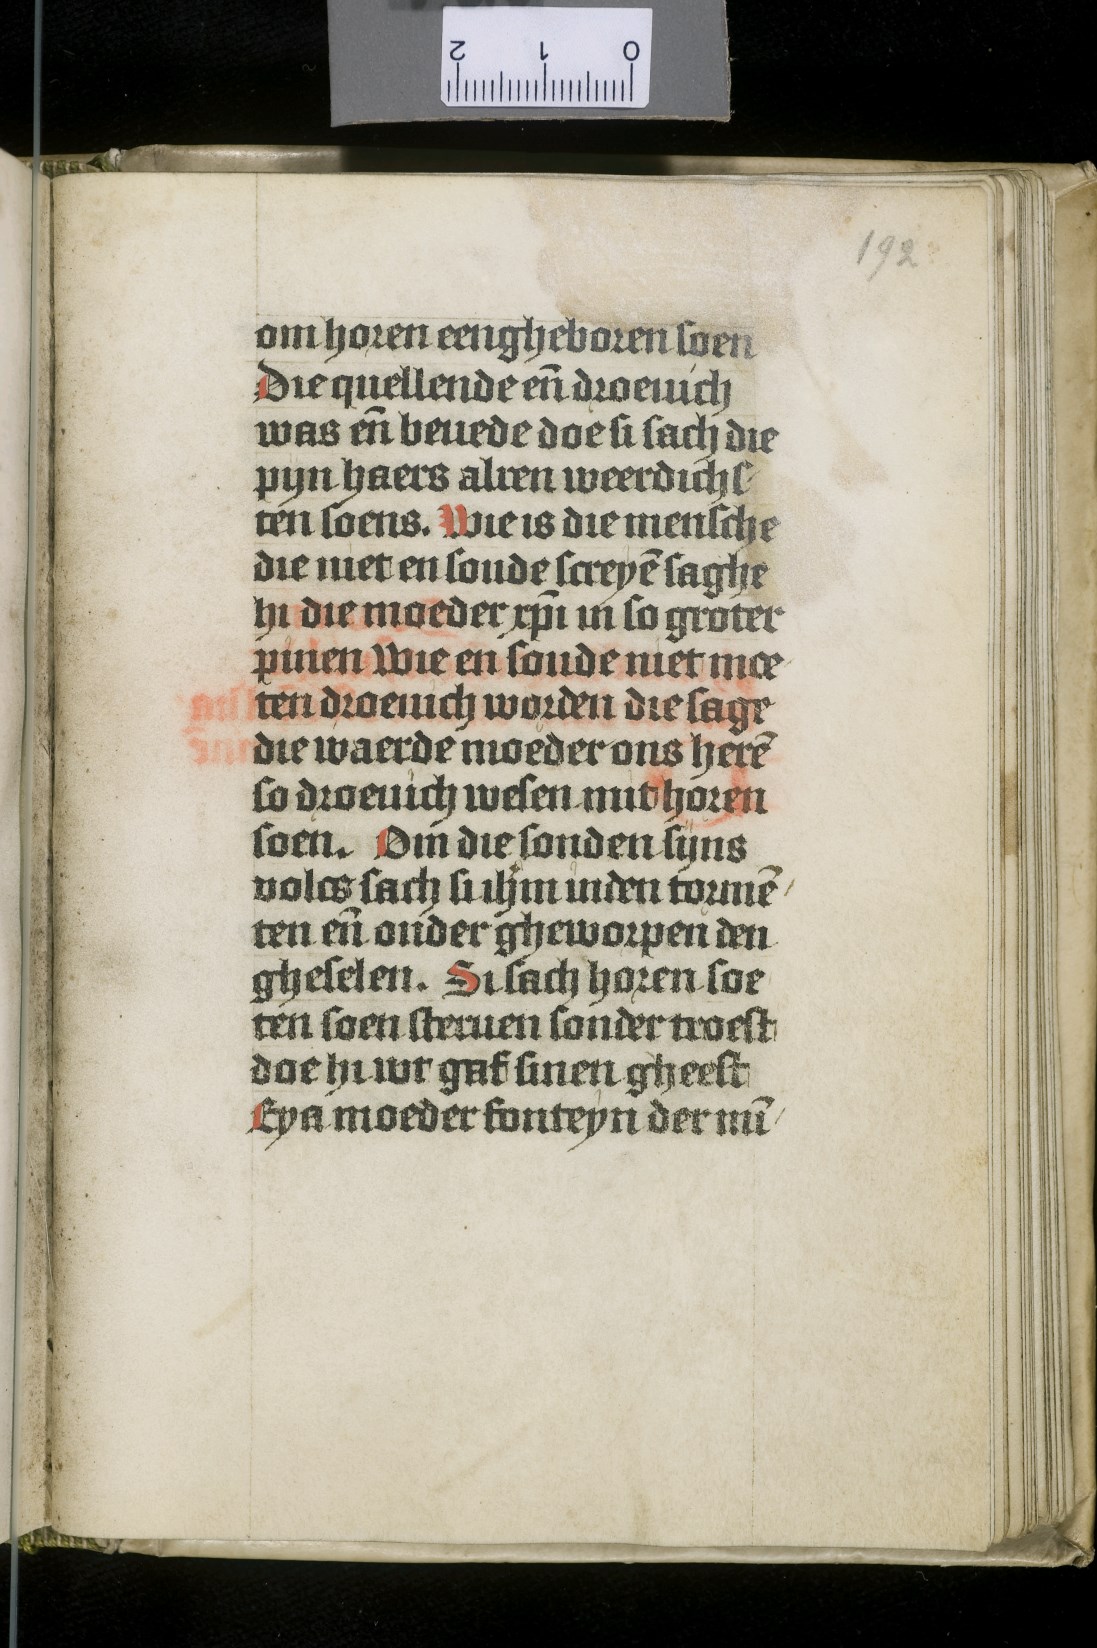 192
om horen eengheboren soen
Die quellende en̄ droeuich
was en̄ beuede doe si sach die
pijn haers alren weerdichs
ten soens. Wie is die mensche
die niet en soude screyē saghe
hi die moeder xp̄i in so groter
pinen Wie en soude niet moe
ten droeuich worden die sage
die waerde moeder ons herē
so droeuich wesen mit horen
soen. Om die sonden sijns
volcs sach si ihm inden tormē
ten en̄ onder gheworpen den
gheselen. Si sach horen soe
ten soen steruen sonder troest
doe hi wt gaf sinen gheest
Eya moeder fonteyn der mī